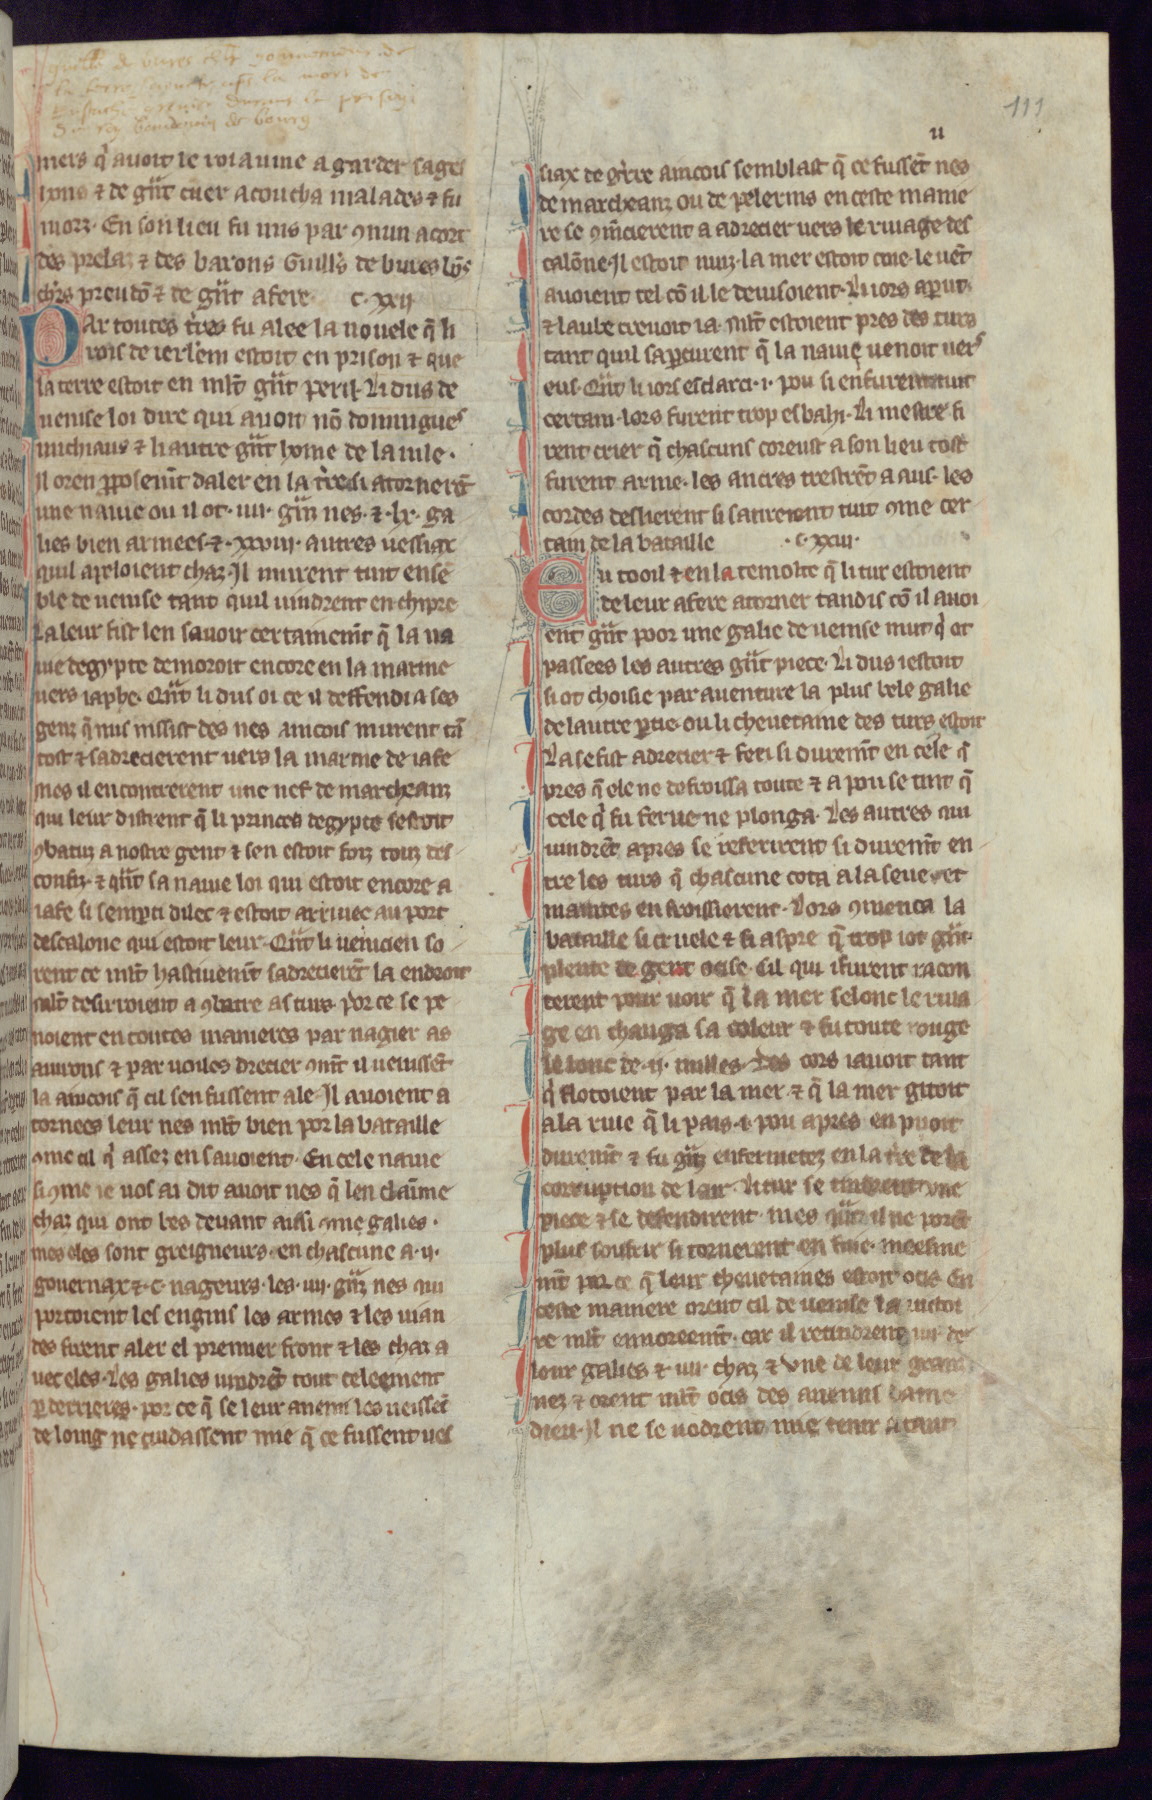 111
u
mers q' auoit le roiaume a garder sages
hons ⁊ de gñt cuer acoucha malades ⁊ fu
morz. En son lieu fu mis par ꝯmun acort
des prelaz ⁊ des barons Guill's de bures
ch'rs preudõ ⁊ de gñt afere. c. xxii
Par toutes t'res fu alee la nouele q̃ li
rois de ierl'em estoit en prison ⁊ que
la terre estoit en ml't gñt peril. Li dus de
uenise loi dire qui auoit nõ dominigues
michiaus ⁊ li autre gñt home de la uile.
Il oren ꝓposemt daler en la t're si atornerẽt
une nauie ou il ot. iiii. gñz nes. ⁊. lx. ga
lies bien armees. ⁊. xxviii. autres uessiax
quil apeloient chaz. Il murent tuit ense
ble de uenise tant quil uindrent en chipre
La leur fist len sauoir certainemt q̃ la na
uie degypte demoroit encore en la marine
uers iaphe. Qñt li dus oi ce il deffendi a ses
genz q̃ nus nissist des nes aincois murent tã
tost ⁊ sadrecierent uers la marine de iafe
mes il encontrerent une nef de marcheanz
qui leur distrent q̃ li princes degypte sestoit
ꝯbatuz a nostre gent ⁊ sen estoit foiz touz des
confiz. ⁊ qñt sa nauie loi qui estoit encore a
iafe si sempti dilec ⁊ estoit arriuee au port
descalone qui estoit leur. Qñt li uenicien so
rent ce ml't hastiuemt sadrecierẽt la endroit
ml't desirroient a ꝯbatre as turs. por ce se pe
noient en toutes manieres par nagier as
auirons ⁊ par uoiles drecier ꝯmt il ueissẽt
la aincois q̃ cil sen fussent ale. Il auoient a
tornees leur nes ml't bien por la bataille
ꝯme cil q' assez en sauoient. En cele nauie
si ꝯme ie uos ai dit auoit nes q̃ len claime
chaz qui ont bes deuant aussi ꝯme galies.
mes eles sont greigneurs. en chascune a. ii.
gouernax ⁊. c. nageurs. les. iiii. gñz nes qui
portoient les engins les armes ⁊ les uian
des firent aler el premier front ⁊ les chaz a
uec eles. Les galies uindrẽt tout celeement
ꝑ derrieres. por ce q̃ se leur anemis les ueissẽt
de loing ne cuidassent mie q̃ ce fussent ues
siax de g'rre aincois semblast q̃ ce fussẽt nes
de marcheanz ou de pelerins en ceste manie
re se ꝯm̃cierent a adrecier uers le riuage des
calõne. Il estoit nuiz. la mer estoit coie. le uẽt
auoient tel cõ il le deuisoient. Li iors aparut
⁊ laube creuoit ia. ml't estoient pres des turs
tant quil sapercurent q̃ la nauie uenoit uers
eus. Qñt li iors esclarci. i. pou si en furent tuit
certain. lors furent trop esbahi. Li mestre fi
rent crier q̃ chascuns coreust a son lieu tost
furent arme. les ancres trestrẽt a aus. les
cordes deslierent si satirerent tuit ꝯme cer
tain de la bataille. c. xxiii.
En tooil ⁊ en la temolte q̃ li tur estoient
de leur afere atorner tandis cõ il auoi
ent gñt poor une galie de uenise mut q' ot
passees les autres gñt piece. Li dus iestoit
si ot choisie par auenture la plus bele galie
de lautre ptie. ou li cheuetaine des turs estoit
La se fist adrecier ⁊ feri si duremt en cele q̃
pres q̃ ele ne defroissa toute ⁊ a pou se tint q̃
cele q' fu ferue ne plonga. Les autres qui
uindrẽt apres se referirent si duremt en
tre les turs q̃ chascune cota a la seue. et
maintes en froissierent. Lors ꝯmenca la
bataille si cruele ⁊ si aspre q̃ trop iot gñt
plente de gent ocise. Cil qui i furent racon
terent pour uoir q̃ la mer selonc le riua
ge en changa sa coleur ⁊ fu toute rouge
le lonc de. ii. milles. Des cors iauoit tant
q' flotoient par la mer. ⁊ q̃ la mer gitoit
a la riue q̃ li pais. i. pou apres en puoit
duremt ⁊ fu gñz enfermetez en la t're de la
corruption de lair. Li tur se tindrent une
piece ⁊ se defendirent. mes qñt il ne porẽt
plus soufrir si tornerent en fuie. meesme
mt por ce q̃ leur cheuetaines estoit ocis. En
ceste maniere orent cil de uenise la uictoi
re ml't ennoreemt. car il retindrent. iiii. de
lour galies ⁊. iiii. chaz ⁊ une de leur granz
nez ⁊ orent ml't ocis des anemis dame
dieu. Il ne se uodrent mie tenir a tant